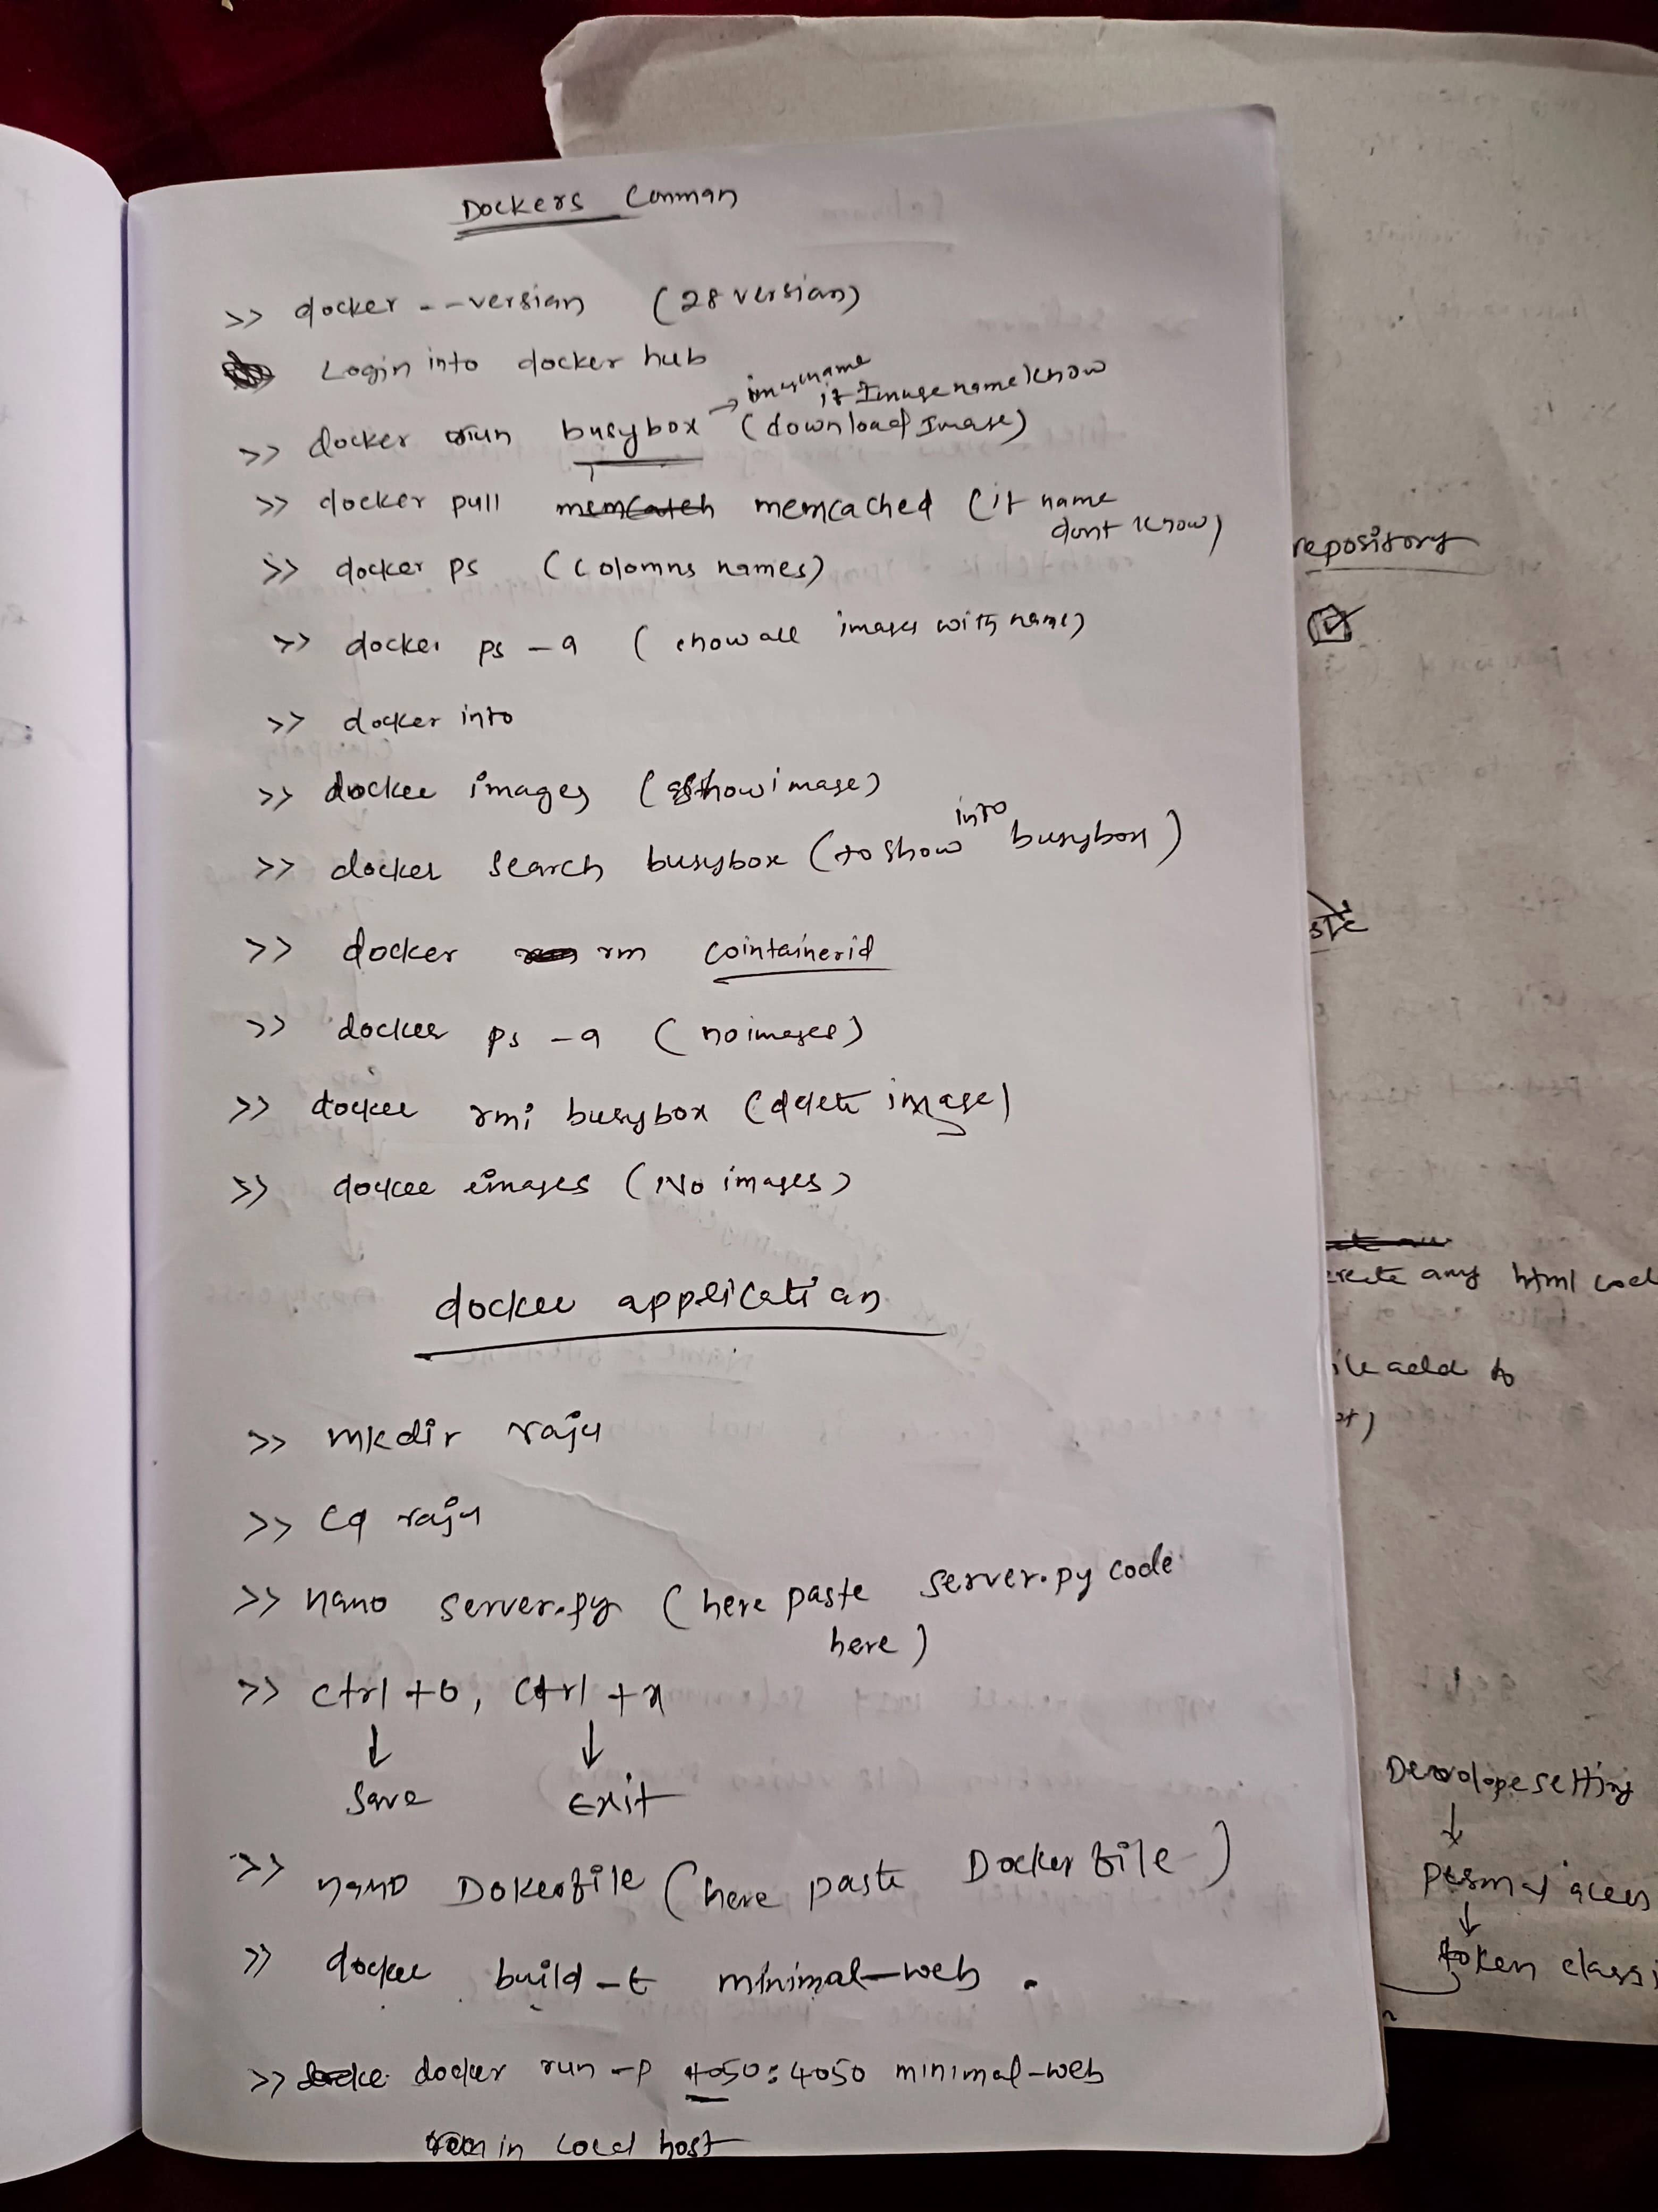 Dockers Conman
>> docker --version (28 version)
Login into docker hub
>> docker run busybox → imagename if Image name know (download Image)
>> docker pull memcatch memcached (if name dont know)
>> docker ps (Colomns names)
>> docker ps -a (show all images with name)
>> docker info
>> docker images (show image)
>> docker search busybox (to show info busybox)
>> docker rm cointainerid
>> docker ps -a (no images)
>> docker rmi busybox (delete image)
>> docker images (No images)
docker application
>> mkdir raju
>> cd raju
>> nano server.py (here paste server.py code
here)
>> ctrl +o, ctrl +x
↓ ↓
Save Exit
>> nano Dokerfile (here paste Dockerfile)
>> docker build -t minimal-web .
>> docker run -p 4050:4050 minimal-web
run in local host
repository
create any html cod
file add to
Devolope setting
↓
↓
token classi